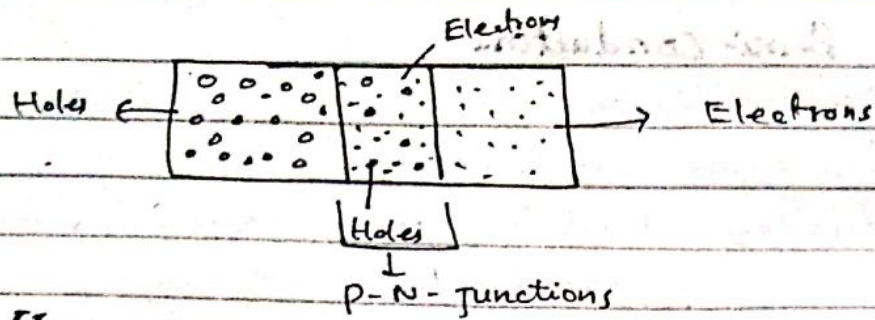 Electrons
Holes
Electrons
Holes
P-N-Junctions